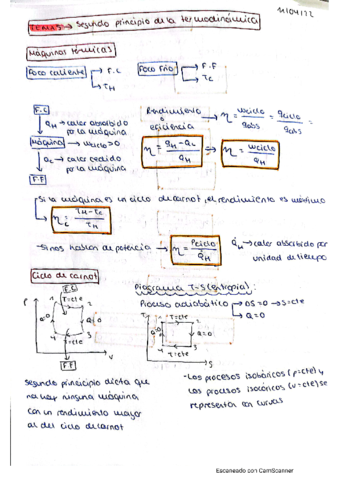 11/04/22
TEMA 5 → Segundo principio de la termodinámica
Máquinas térmicas
Foco caliente → F.C
→ TH
Foco frío → F.F
→ TC
F.C
QH → calor absorbido por la máquina
Máquina → Wciclo > 0
QC → calor cedido por la máquina
F.F
Rendimiento o eficiencia η = Wciclo / Qabs = Qciclo / Qabs
η = (QH - QC) / QH ⇒ η = Wciclo / QH
→ Si la máquina es un ciclo de carnot, el rendimiento es máximo
η = (TH - TC) / TH
→ Si nos hablan de potencia → η = Pciclo / Q̇H
Q̇H → calor absorbido por unidad de tiempo
Ciclo de carnot
F.C
P
T=cte
1
2
Q=0
4
3
T=cte
F.F
V
Diagrama T-S (entropía):
Proceso adiabático → ΔS=0 → S=cte
→ Q=0
T
T=cte
S
Segundo principio dicta que
no hay ninguna máquina
con un rendimiento mayor
al del ciclo de carnot
- Los procesos isobáricos (p=cte) y
los procesos isocóricos (v=cte) se
representan con curvas
Escaneado con CamScanner